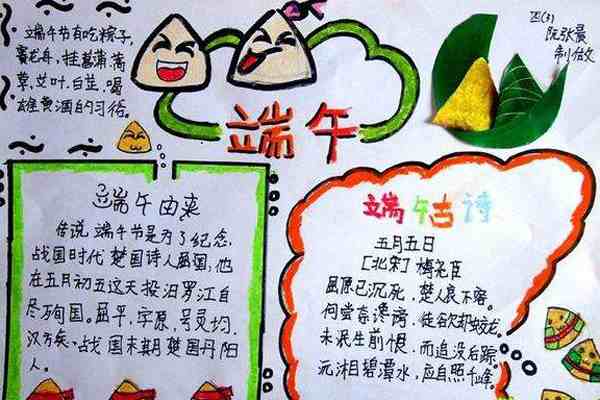 端午节有吃粽子,
赛龙舟,挂菖蒲、蒿
草,艾叶,白芷,喝
雄黄酒的习俗。
端午
四(3)
阮张晨
制做
端午由来
传说端午节是为了纪念,
战国时代楚国诗人屈原,他
在五月初五这天投汨罗江自
尽殉国。屈平,字原,号灵均,
汉方矣、战国末期楚国丹阳
人。
端午古诗
五月五日
[北宋]梅尧臣
屈原已沉死,楚人哀不容。
何尝奈谗谤,徒欲却蛟龙。
未泯生前恨,而追没后踪。
沅湘碧潭水,应自照千峰。